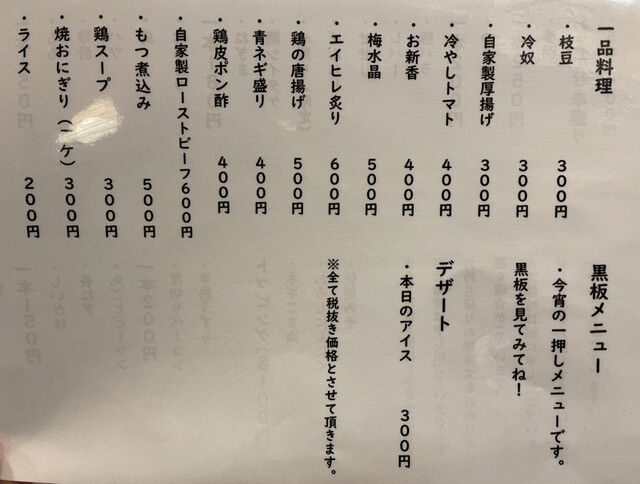 一品料理
・枝豆 300円
・冷奴 300円
・自家製厚揚げ 300円
・冷やしトマト 400円
・お新香 400円
・梅水晶 500円
・エイヒレ炙り 600円
・鶏の唐揚げ 500円
・青ネギ盛り 400円
・鶏皮ポン酢 400円
・自家製ローストビーフ600円
・もつ煮込み 500円
・鶏スープ 300円
・焼おにぎり(二ケ) 300円
・ライス 200円
黒板メニュー
・今宵の一押しメニューです。
黒板を見てみてね!
デザート
・本日のアイス 300円
※全て税抜き価格とさせて頂きます。